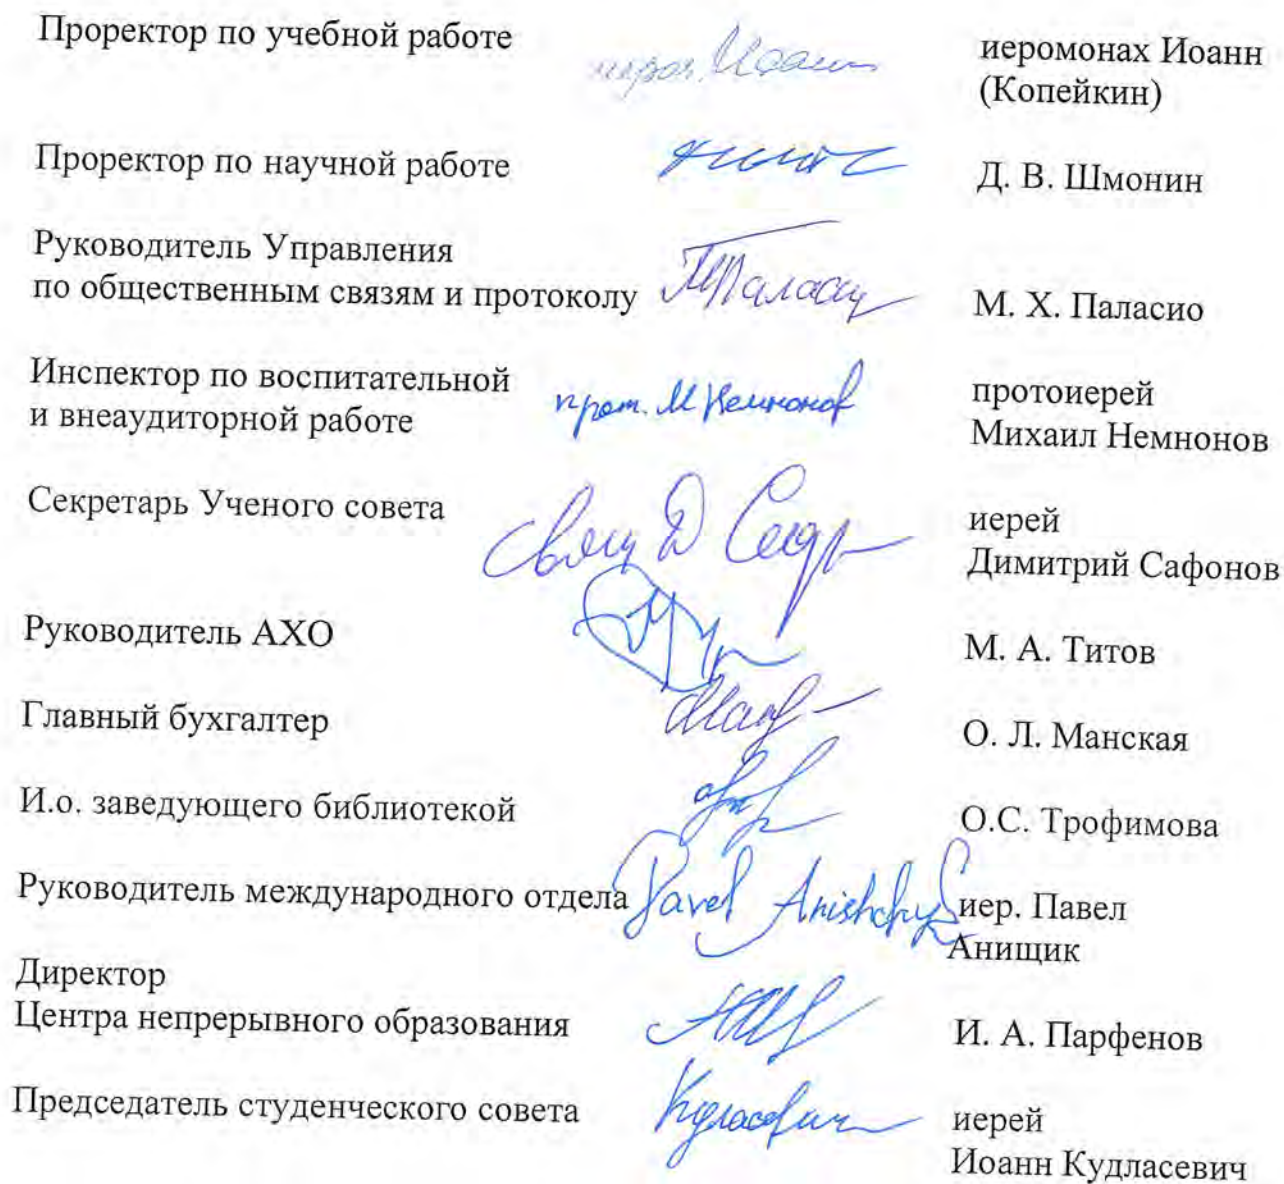 Проректор по учебной работе
иером. Иоанн
иеромонах Иоанн
(Копейкин)
Проректор по научной работе
Д. В. Шмонин
Руководитель Управления
по общественным связям и протоколу
М. Х. Паласио
Инспектор по воспитательной
и внеаудиторной работе
прот. М Немнонов
протоиерей
Михаил Немнонов
Секретарь Ученого совета
свящ Д
иерей
Димитрий Сафонов
Руководитель АХО
М. А. Титов
Главный бухгалтер
О. Л. Манская
И.о. заведующего библиотекой
О.С. Трофимова
Руководитель международного отдела
Pavel
иер. Павел
Анищик
Директор
Центра непрерывного образования
И. А. Парфенов
Председатель студенческого совета
иерей
Иоанн Кудласевич